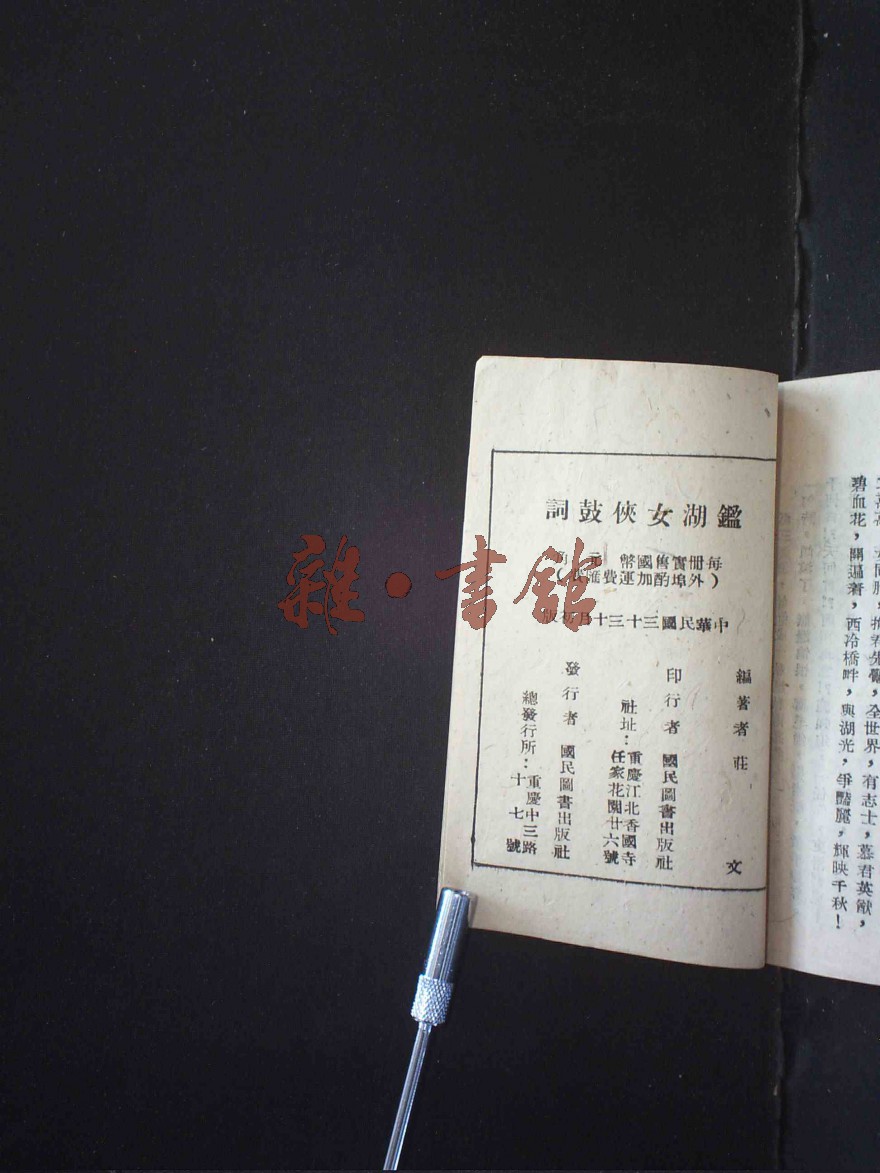 鑑湖女俠鼓詞
每冊實售國幣 元 角
(外埠酌加運費匯費)
中華民國三十三十月初版
編著者 莊 文
印行者 國民圖書出版社
社址：重慶江北香國寺
任家花園廿六號
發行者 國民圖書出版社
總發行所：重慶中三路
十七號
全世界，有志士，慕君英猷，
碧血花，開遍着，西冷橋畔，與湖光，爭豔麗，輝映千秋！
雜·書館